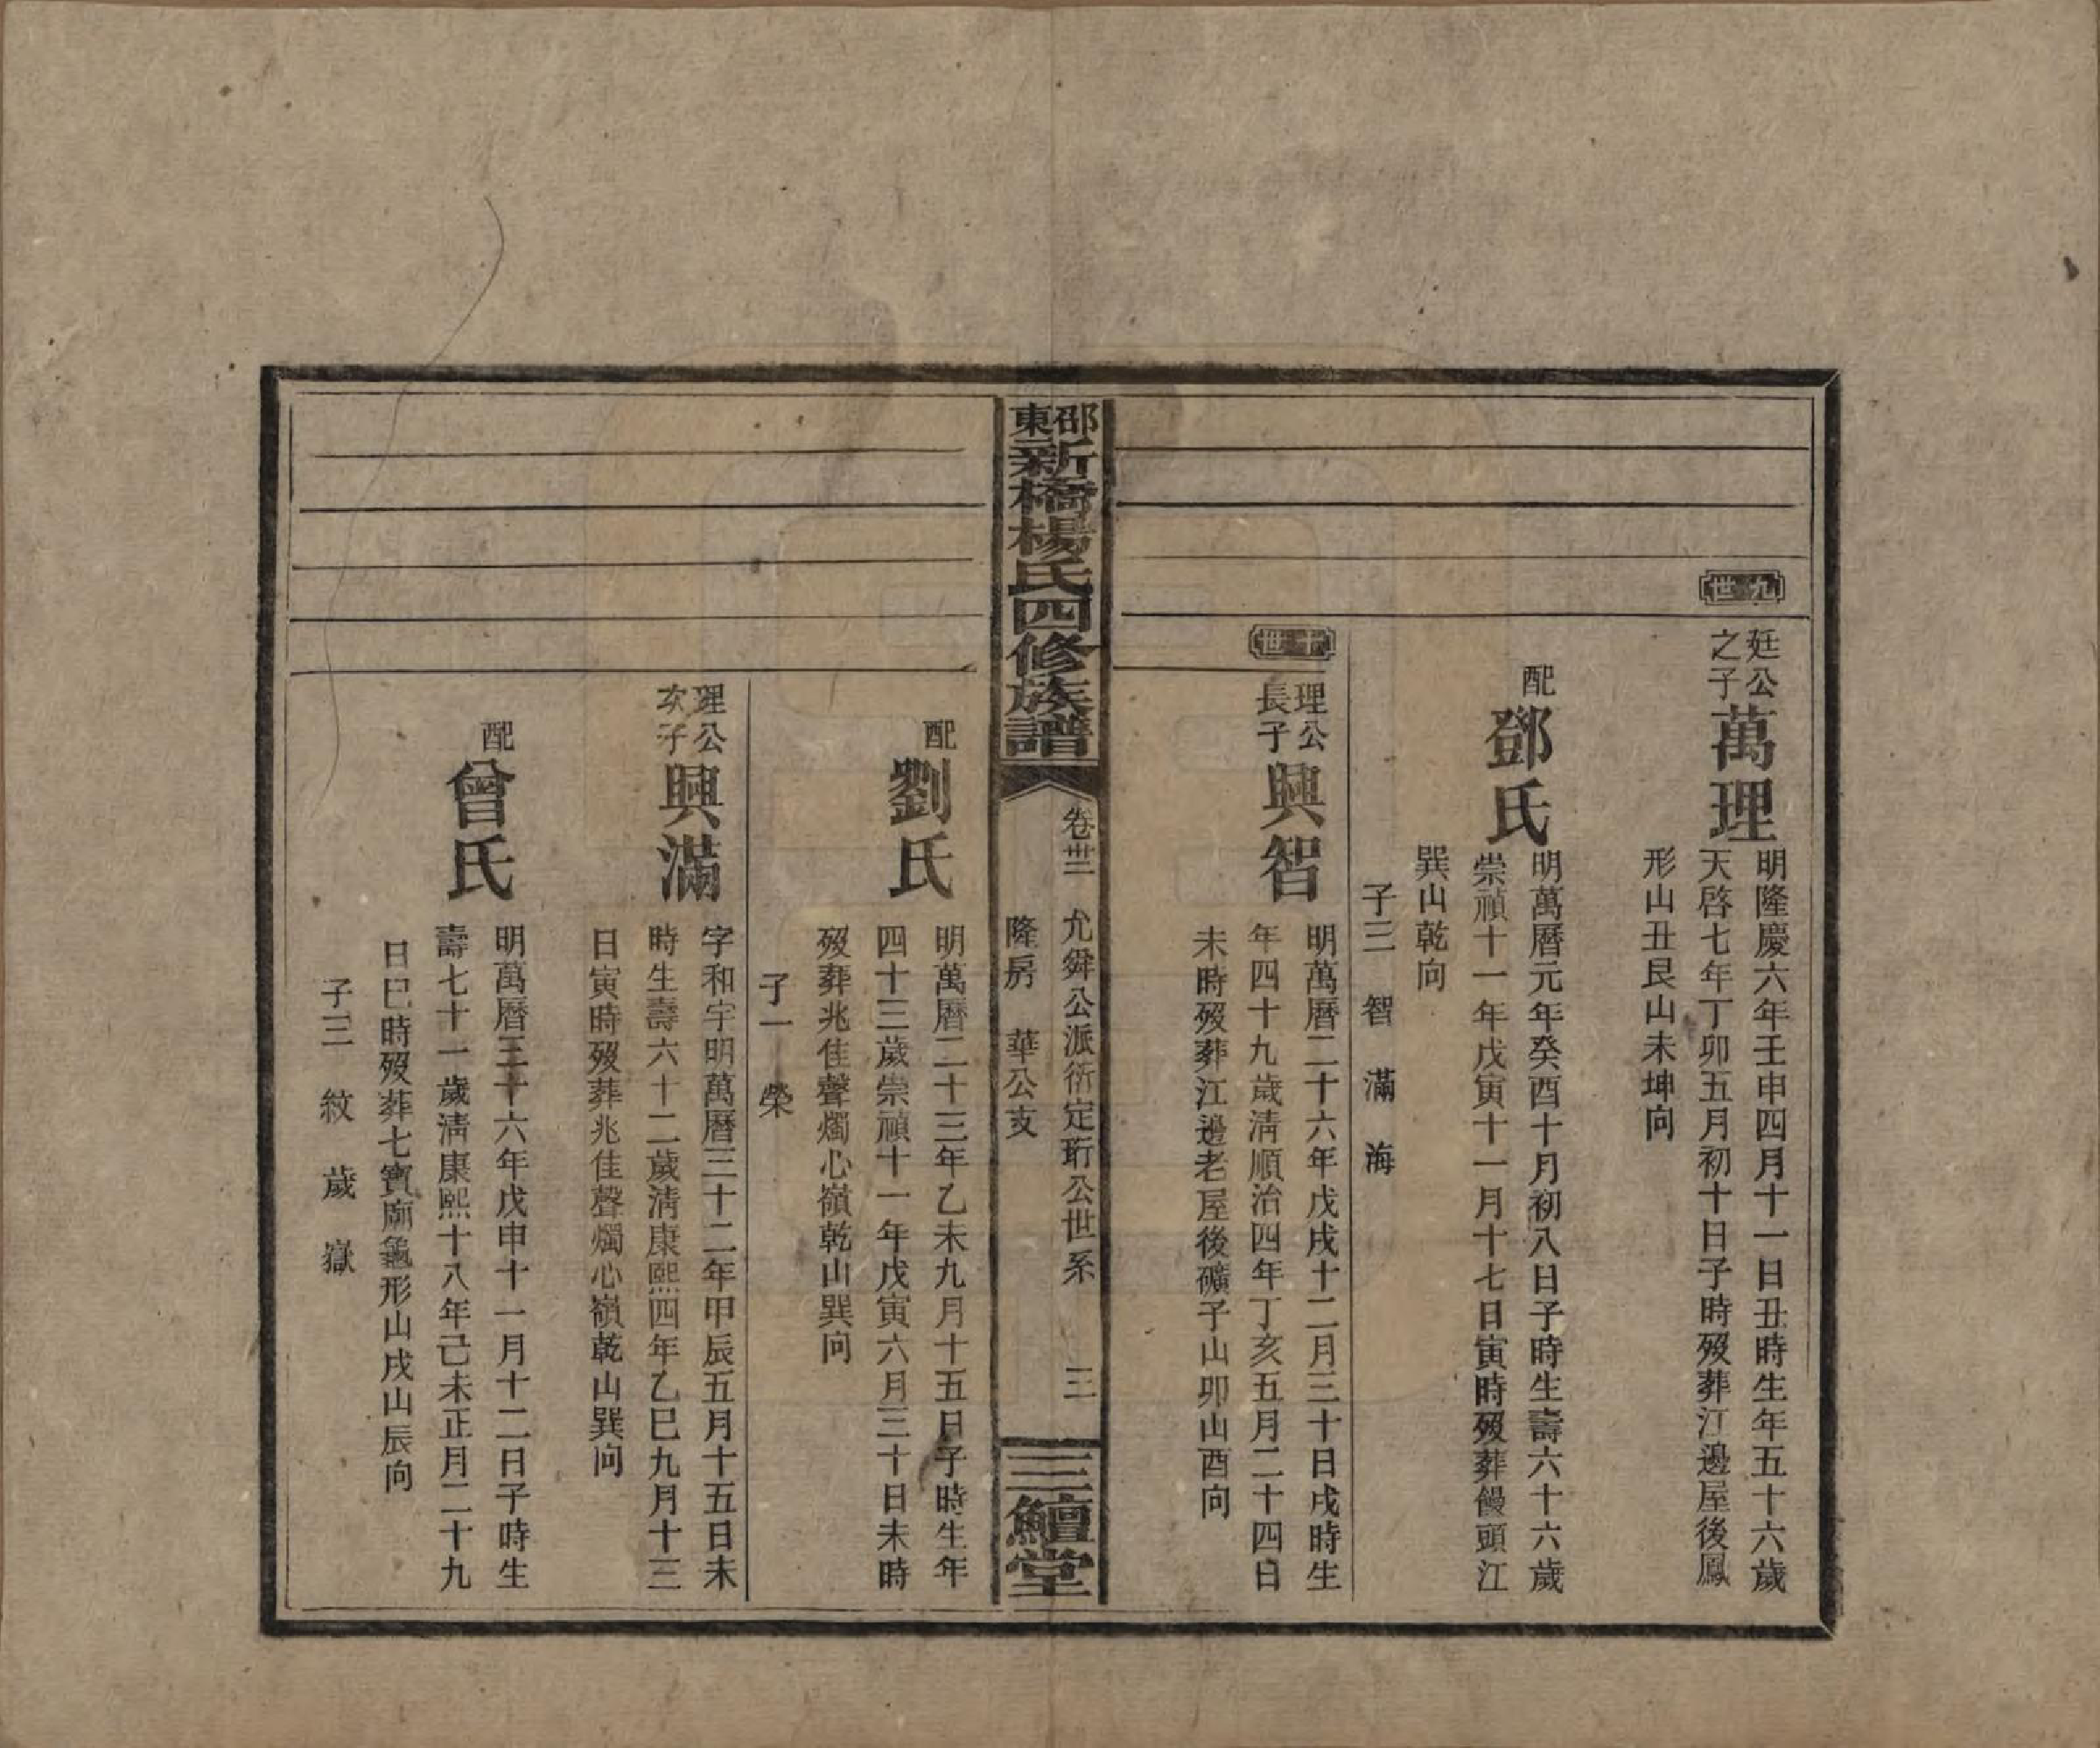 九世
廷公之子
萬理
明隆慶六年壬申四月十一日丑時生年五十六歲
天啓七年丁卯五月初十日子時歿葬江邊屋後鳳
形山丑艮山未坤向
配
鄧氏
明萬曆元年癸酉十月初八日子時生壽六十六歲
崇禎十一年戊寅十一月十七日寅時歿葬饅頭江
巽山乾向
子三 智 滿 海
十世
理公長子
興智
明萬曆二十六年戊戌十二月三十日戌時生
年四十九歲清順治四年丁亥五月二十四日
未時歿葬江邊老屋後礦子山卯山酉向
邵東新橋楊氏四修族譜
卷卅三 允舜公派衍定珩公世系 三
隆房 華公支
三鱣堂
配
劉氏
明萬曆二十三年乙未九月十五日子時生年
四十三歲崇禎十一年戊寅六月三十日未時
歿葬兆佳聲燭心嶺乾山巽向
子一 榮
理公次子
興滿
字和宇明萬曆三十二年甲辰五月十五日未
時生壽六十二歲清康熙四年乙巳九月十三
日寅時歿葬兆佳聲燭心嶺乾山巽向
配
曾氏
明萬曆三十六年戊申十一月十二日子時生
壽七十一歲清康熙十八年己未正月二十九
日巳時歿葬七寶廟龜形山戌山辰向
子三 紋 歲 嶽